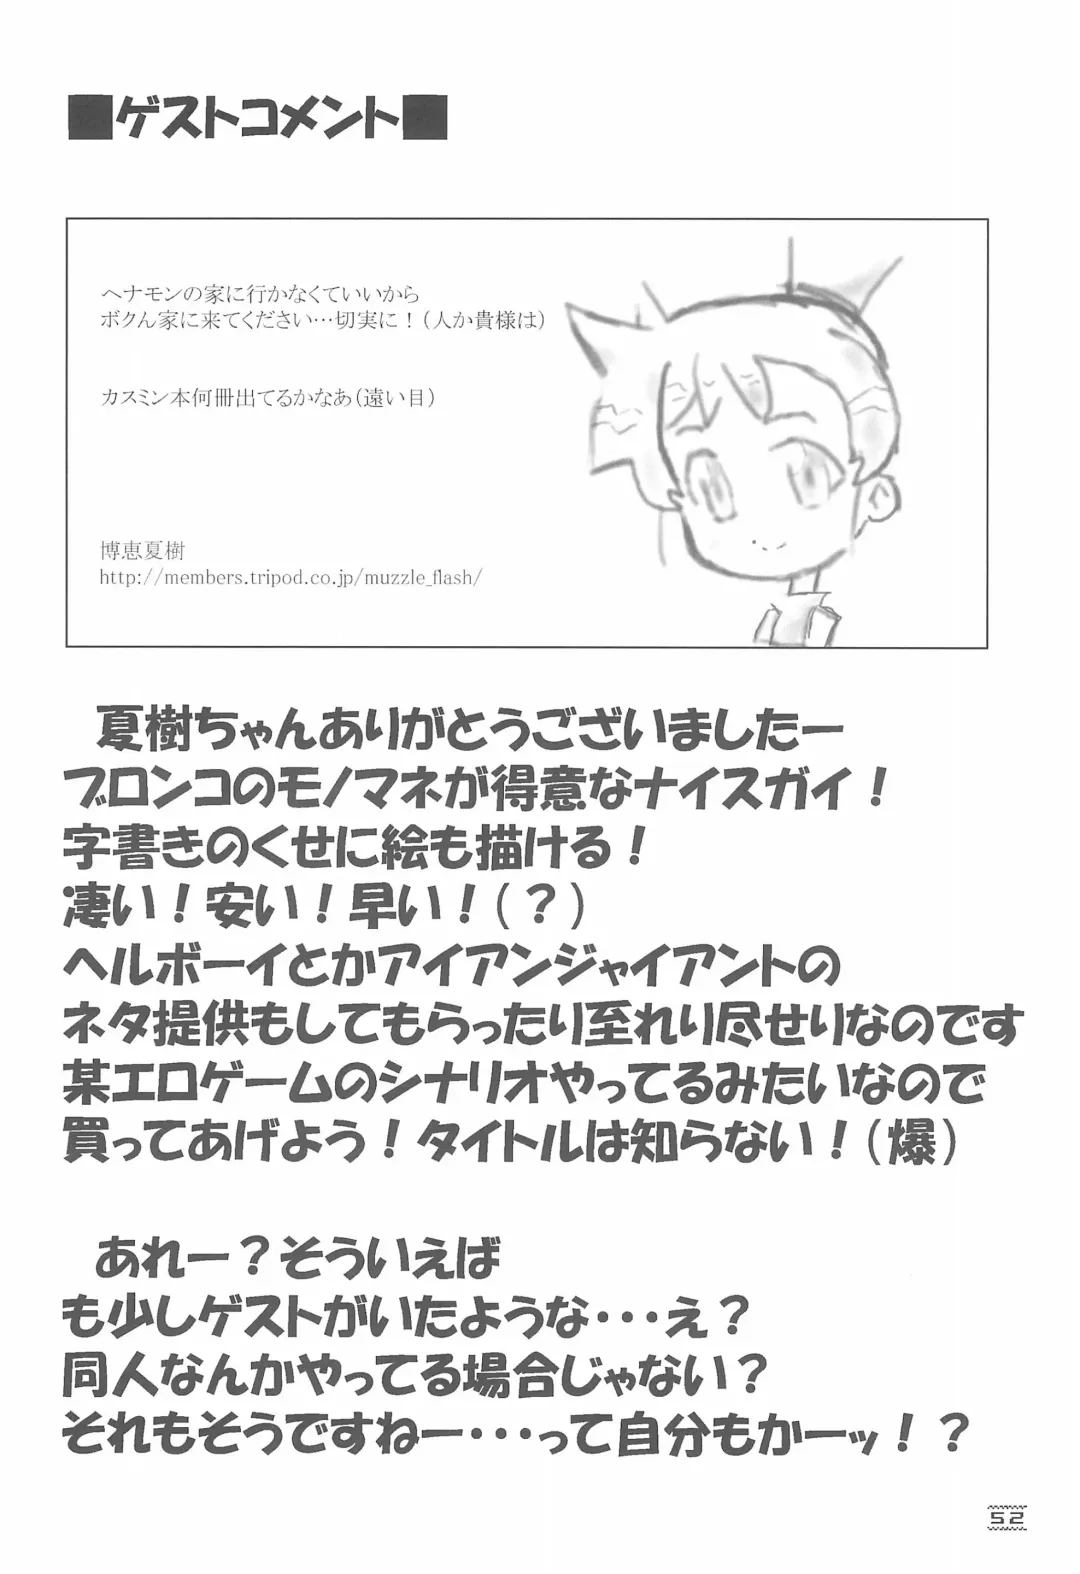 ■ゲストコメント■
ヘナモンの家に行かなくていいから
ボクん家に来てください…切実に！（人か貴様は）
カスミン本何冊出てるかなあ（遠い目）
博恵夏樹
http://members.tripod.co.jp/muzzle_flash/
夏樹ちゃんありがとうございましたー
ブロンコのモノマネが得意なナイスガイ！
字書きのくせに絵も描ける！
凄い！安い！早い！（？）
ヘルボーイとかアイアンジャイアントの
ネタ提供もしてもらったり至れり尽せりなのです
某エロゲームのシナリオやってるみたいなので
買ってあげよう！タイトルは知らない！（爆）
あれー？そういえば
も少しゲストがいたような・・・え？
同人なんかやってる場合じゃない？
それもそうですねー・・・って自分もかーッ！？
52